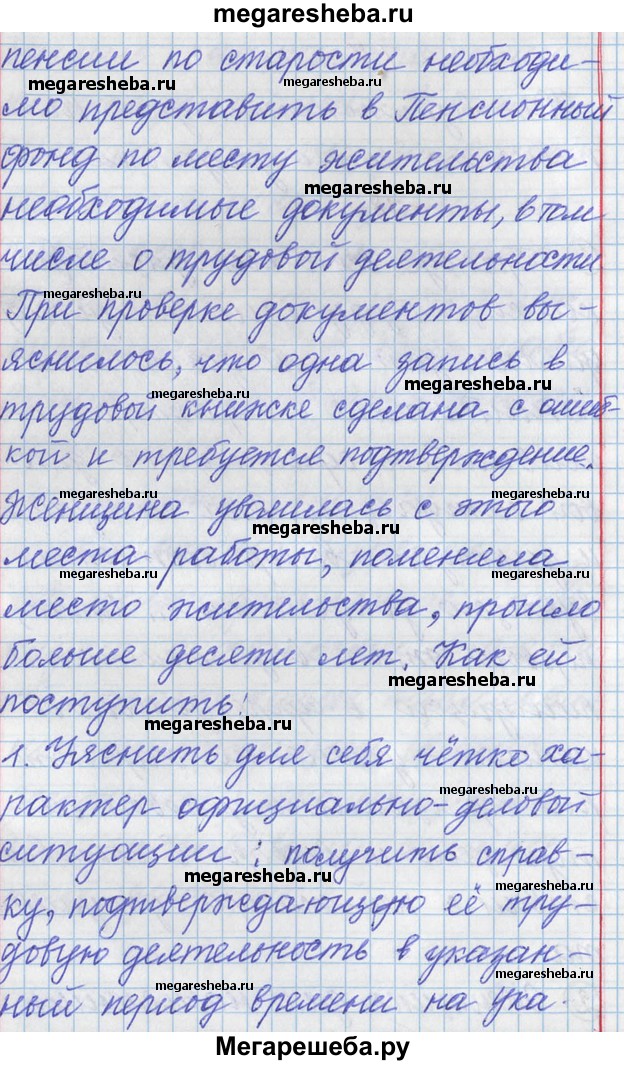 megaresheba.ru
пенсии по старости необходи-
megaresheba.ru megaresheba.ru
мо представить в Пенсионный
фонд по месту жительства
megaresheba.ru
необходимые документы, в том
числе о трудовой деятельности
megaresheba.ru
При проверке документов вы-
яснилось, что одна запись в
megaresheba.ru megaresheba.ru
трудовой книжке сделана с ошиб-
кой и требуется подтверждение.
megaresheba.ru megaresheba.ru
Женщина уволилась с этого
megaresheba.ru
места работы, поменяла
megaresheba.ru megaresheba.ru
место жительства, прошло
больше десяти лет. Как ей
megaresheba.ru
поступить!
megaresheba.ru
1. Уяснить для себя чётко ха-
megaresheba.ru
рактер официально-деловой
ситуации: получить справ-
megaresheba.ru megaresheba.ru
ку, подтверждающую её тру-
довую деятельность в указан-
megaresheba.ru megaresheba.ru
ный период времени на ука-
megaresheba.ru
Мегарешеба.ру